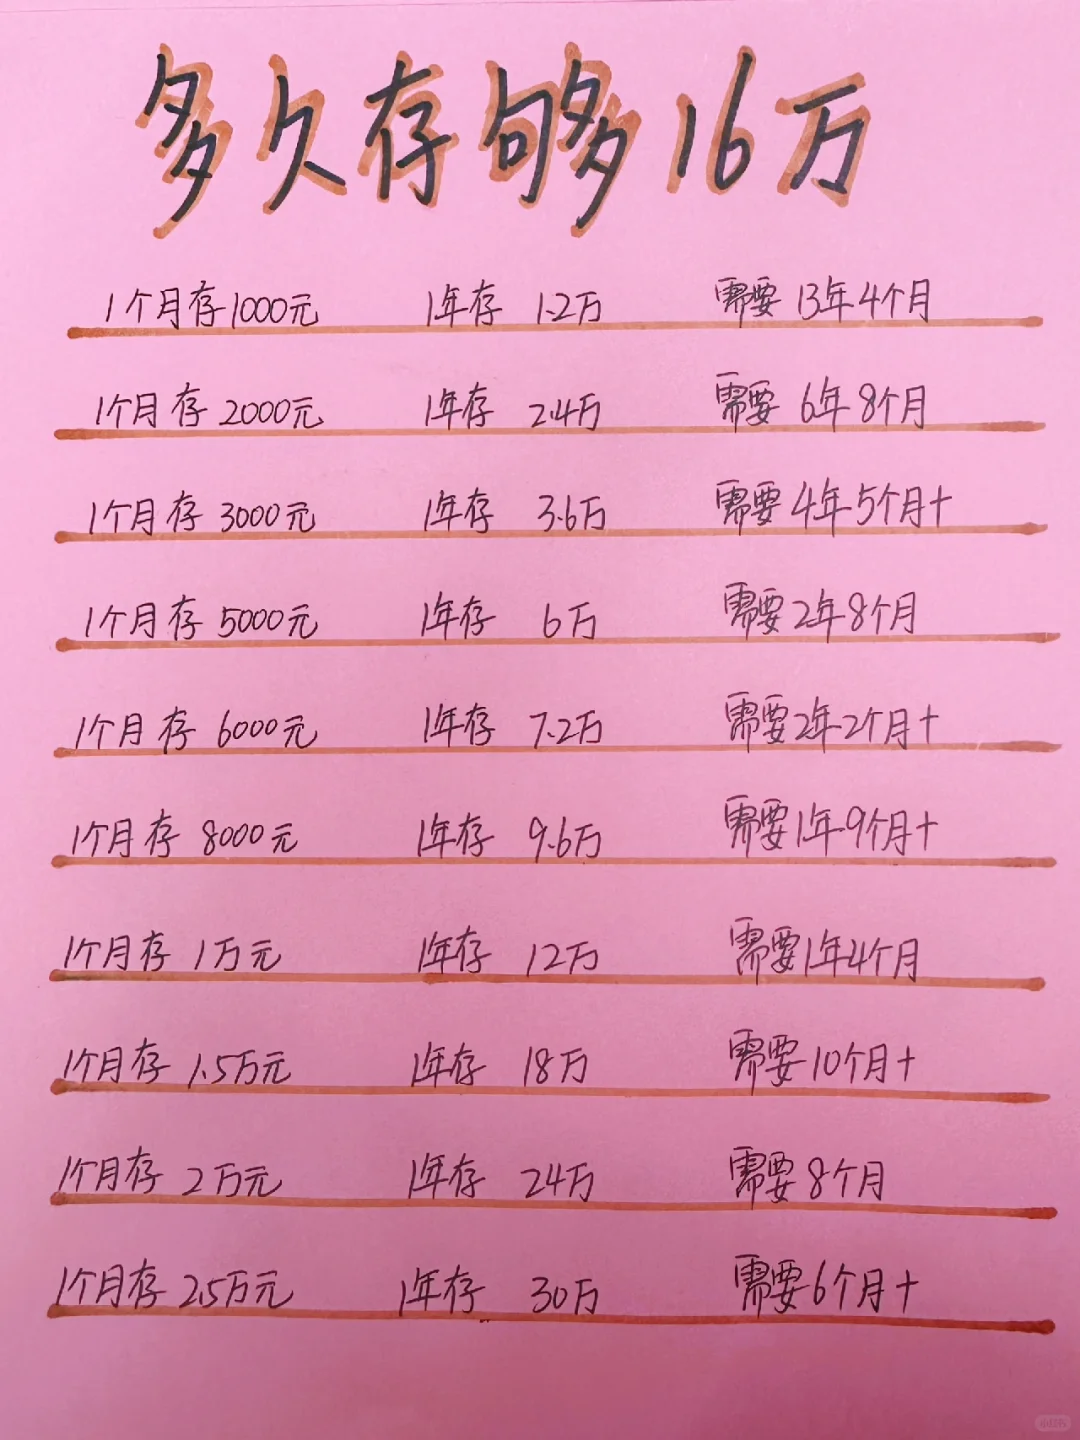 多久存够16万
1个月存1000元 1年存 1.2万 需要 13年4个月
1个月存 2000元 1年存 2.4万 需要 6年8个月
1个月存 3000元 1年存 3.6万 需要 4年5个月+
1个月存 5000元 1年存 6万 需要2年8个月
1个月存 6000元 1年存 7.2万 需要2年2个月+
1个月存 8000元 1年存 9.6万 需要1年9个月+
1个月存 1万元 1年存 12万 需要1年4个月
1个月存 1.5万元 1年存 18万 需要10个月+
1个月存 2万元 1年存 24万 需要8个月
1个月存 2.5万元 1年存 30万 需要6个月+